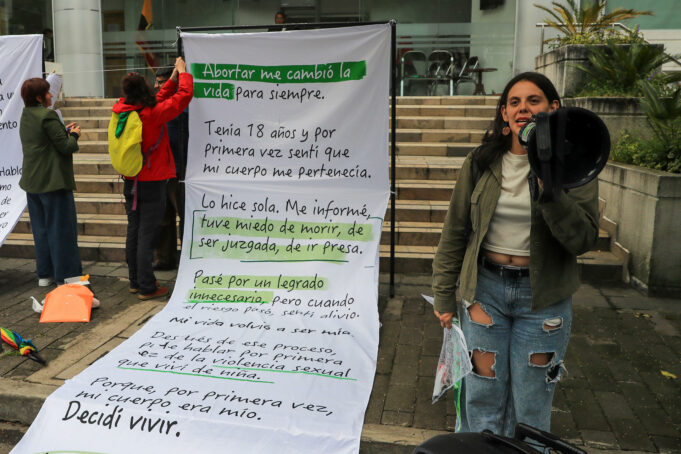 Abortar me cambió la
vida para siempre.
Tenía 18 años y por
primera vez sentí que
mi cuerpo me pertenecía.
Lo hice sola. Me informé,
tuve miedo de morir, de
ser juzgada, de ir presa.
Pasé por un legrado
innecesario, pero cuando
el riesgo pasó, sentí
Mi vida volvió a ser mía.
Después de ese proceso,
pude hablar por primera
vez de la violencia sexual
que viví de niña.
Porque, por primera vez,
mi cuerpo era mío.
Decidí vivir.